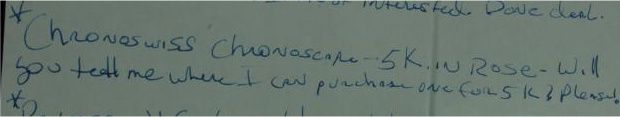 interested. Done deal.
* Chronoswiss Chronoscope - 5K in Rose - Will
you tell me where I can purchase one for 5K? Please!
*